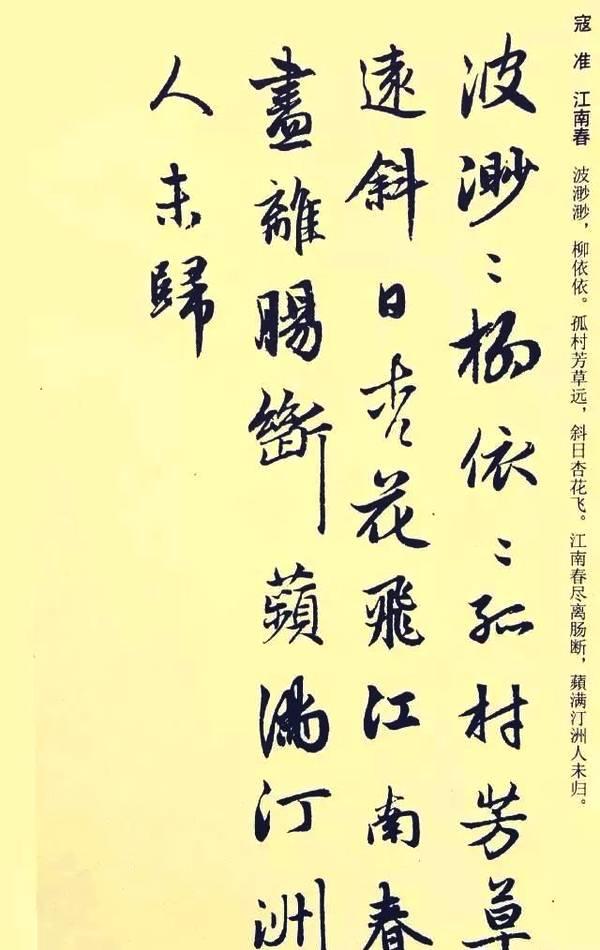 寇准 江南春 波渺渺，柳依依。孤村芳草远，斜日杏花飞。江南春尽离肠断，蘋满汀洲人未归。
波渺〻柳依〻孤村芳草
遠斜日杏花飛江南春
盡離腸斷蘋滿汀洲
人未歸